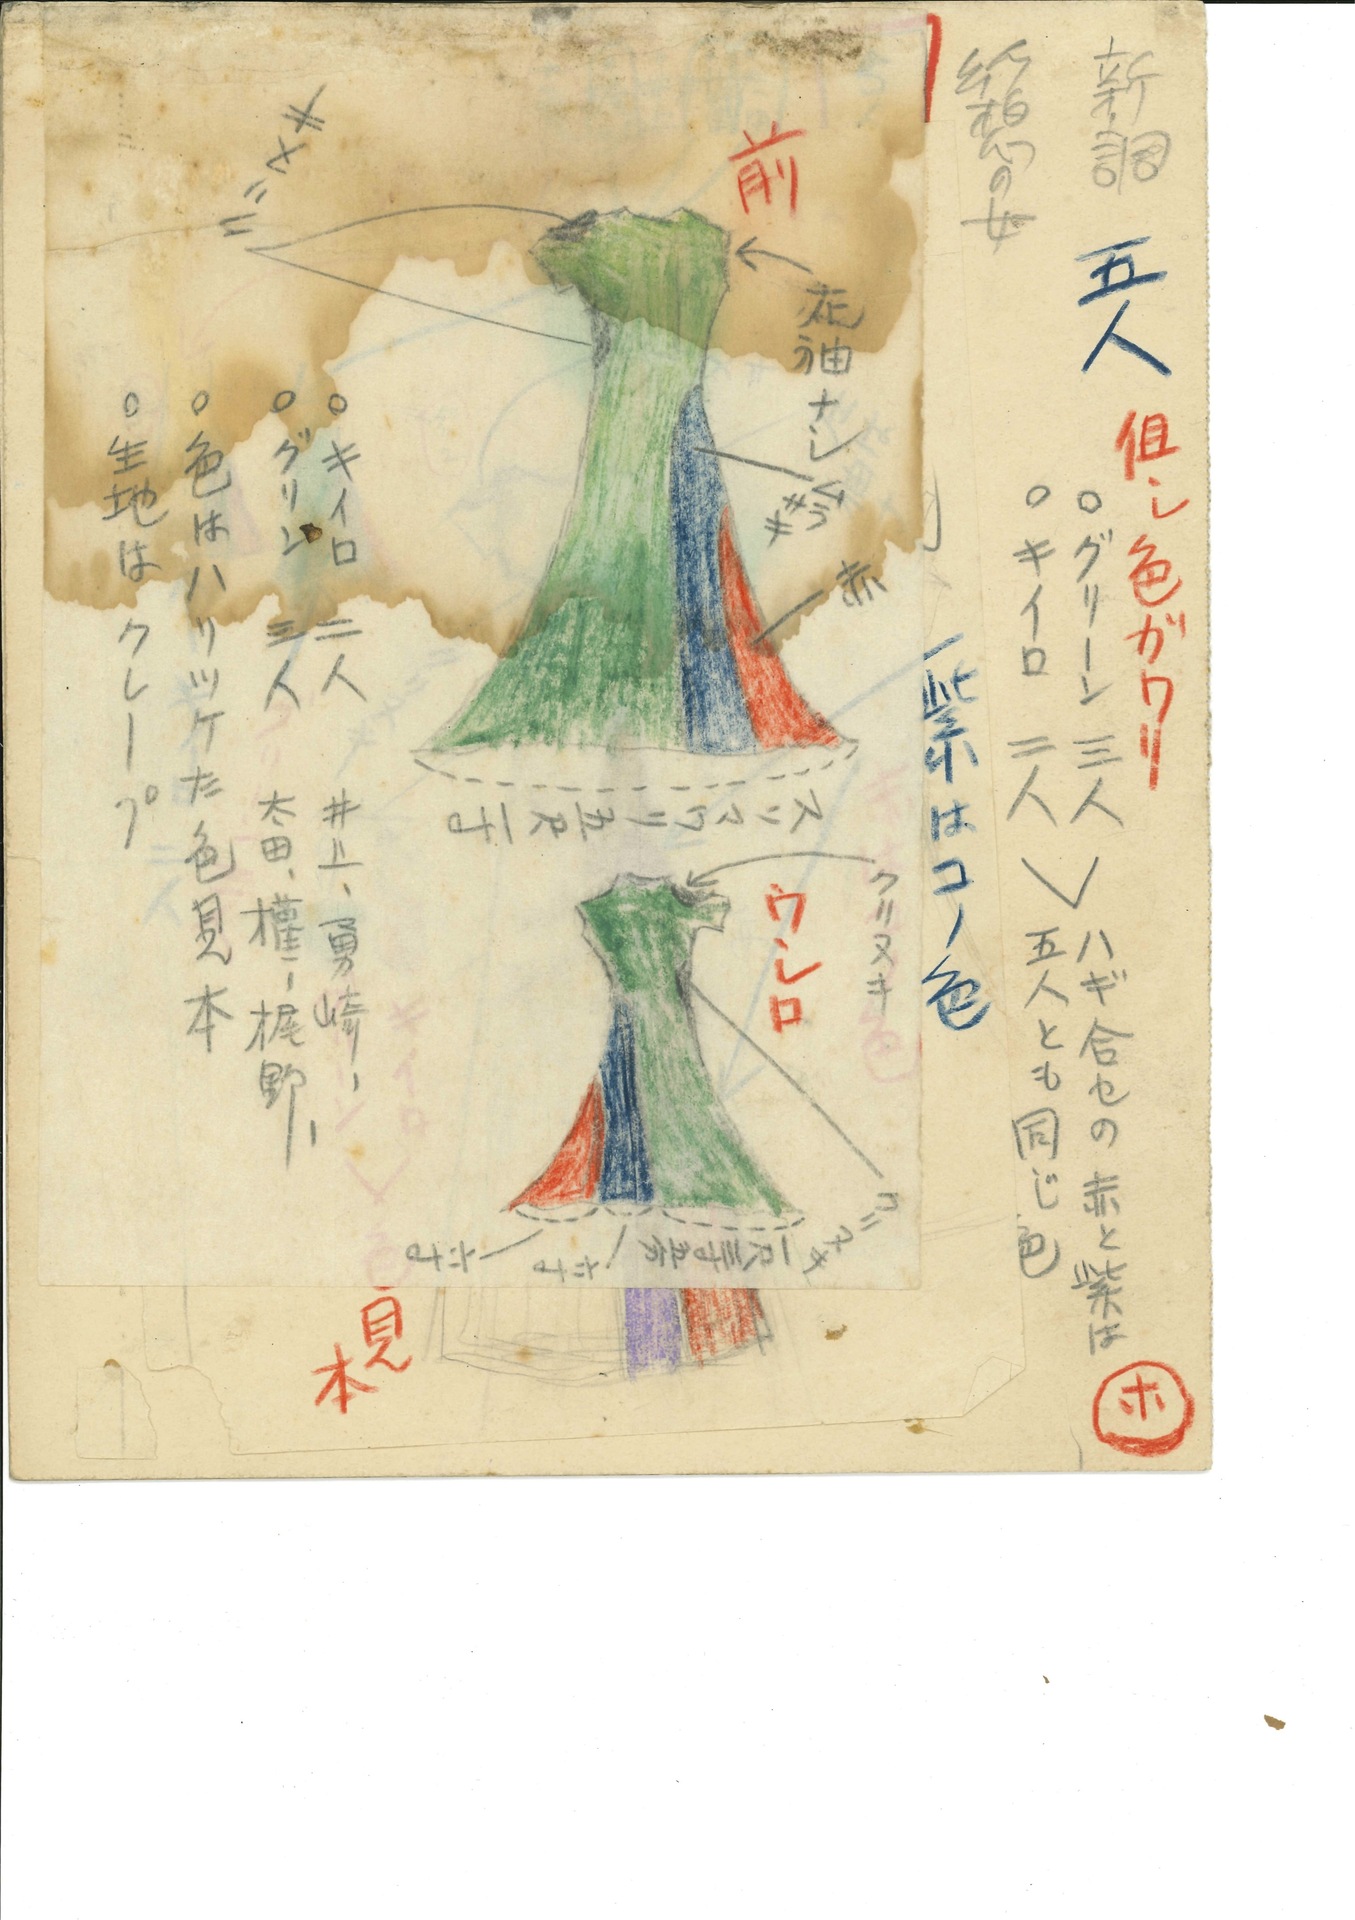 新調 五人 但し色ガワリ
○グリーン 三人
○キイロ 二人
ハギ合セの赤と紫は
五人とも同じ色
ホ
幻想の女
紫はコノ色
前
左袖ナシ
ムラサキ
赤
○キイロ 二人 井上、勇崎、
○グリン 三人 太田、権、梶野、
○色はハリツケた色見本
○生地はクレープ
ウシロ
クリヌキ
一尺三寸五分
六寸
六寸
見本